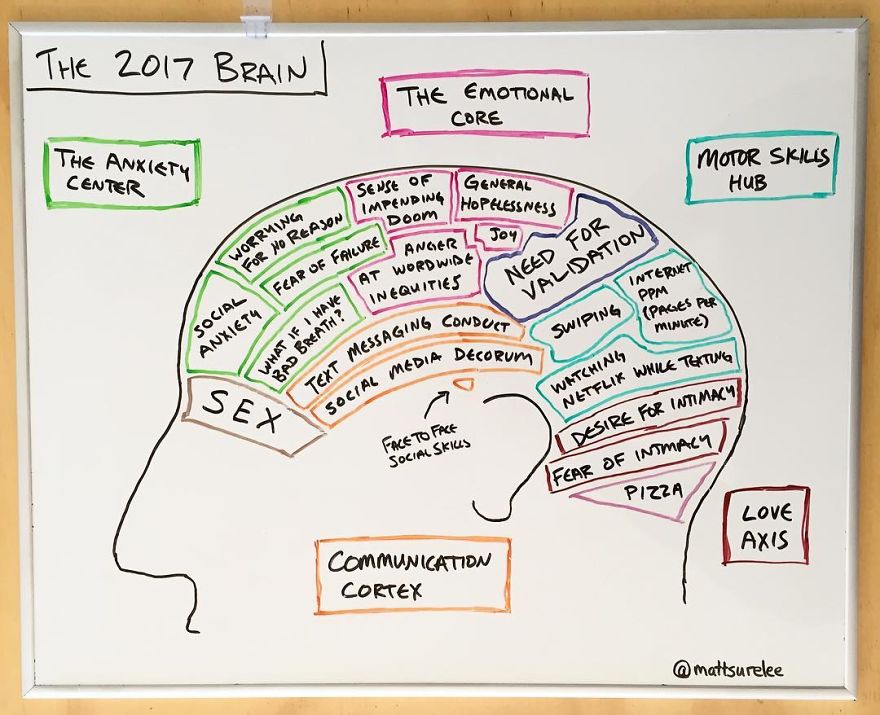 THE 2017 BRAIN
THE EMOTIONAL
CORE
THE ANXIETY
CENTER
MOTOR SKILLS
HUB
WORRYING
FOR NO REASON
SENSE OF
IMPENDING
DOOM
GENERAL
HOPELESSNESS
JOY
NEED FOR
VALIDATION
FEAR OF FAILURE
ANGER
AT WORDWIDE
INEQUITIES
SOCIAL
ANXIETY
WHAT IF I HAVE
BAD BREATH?
TEXT MESSAGING CONDUCT
SOCIAL MEDIA DECORUM
SWIPING
INTERNET
PPM
(PAGES PER
MINUTE)
WATCHING
NETFLIX WHILE TEXTING
SEX
FACE TO FACE
SOCIAL SKILLS
DESIRE FOR INTIMACY
FEAR OF INTIMACY
PIZZA
LOVE
AXIS
COMMUNICATION
CORTEX
@mattsurelee